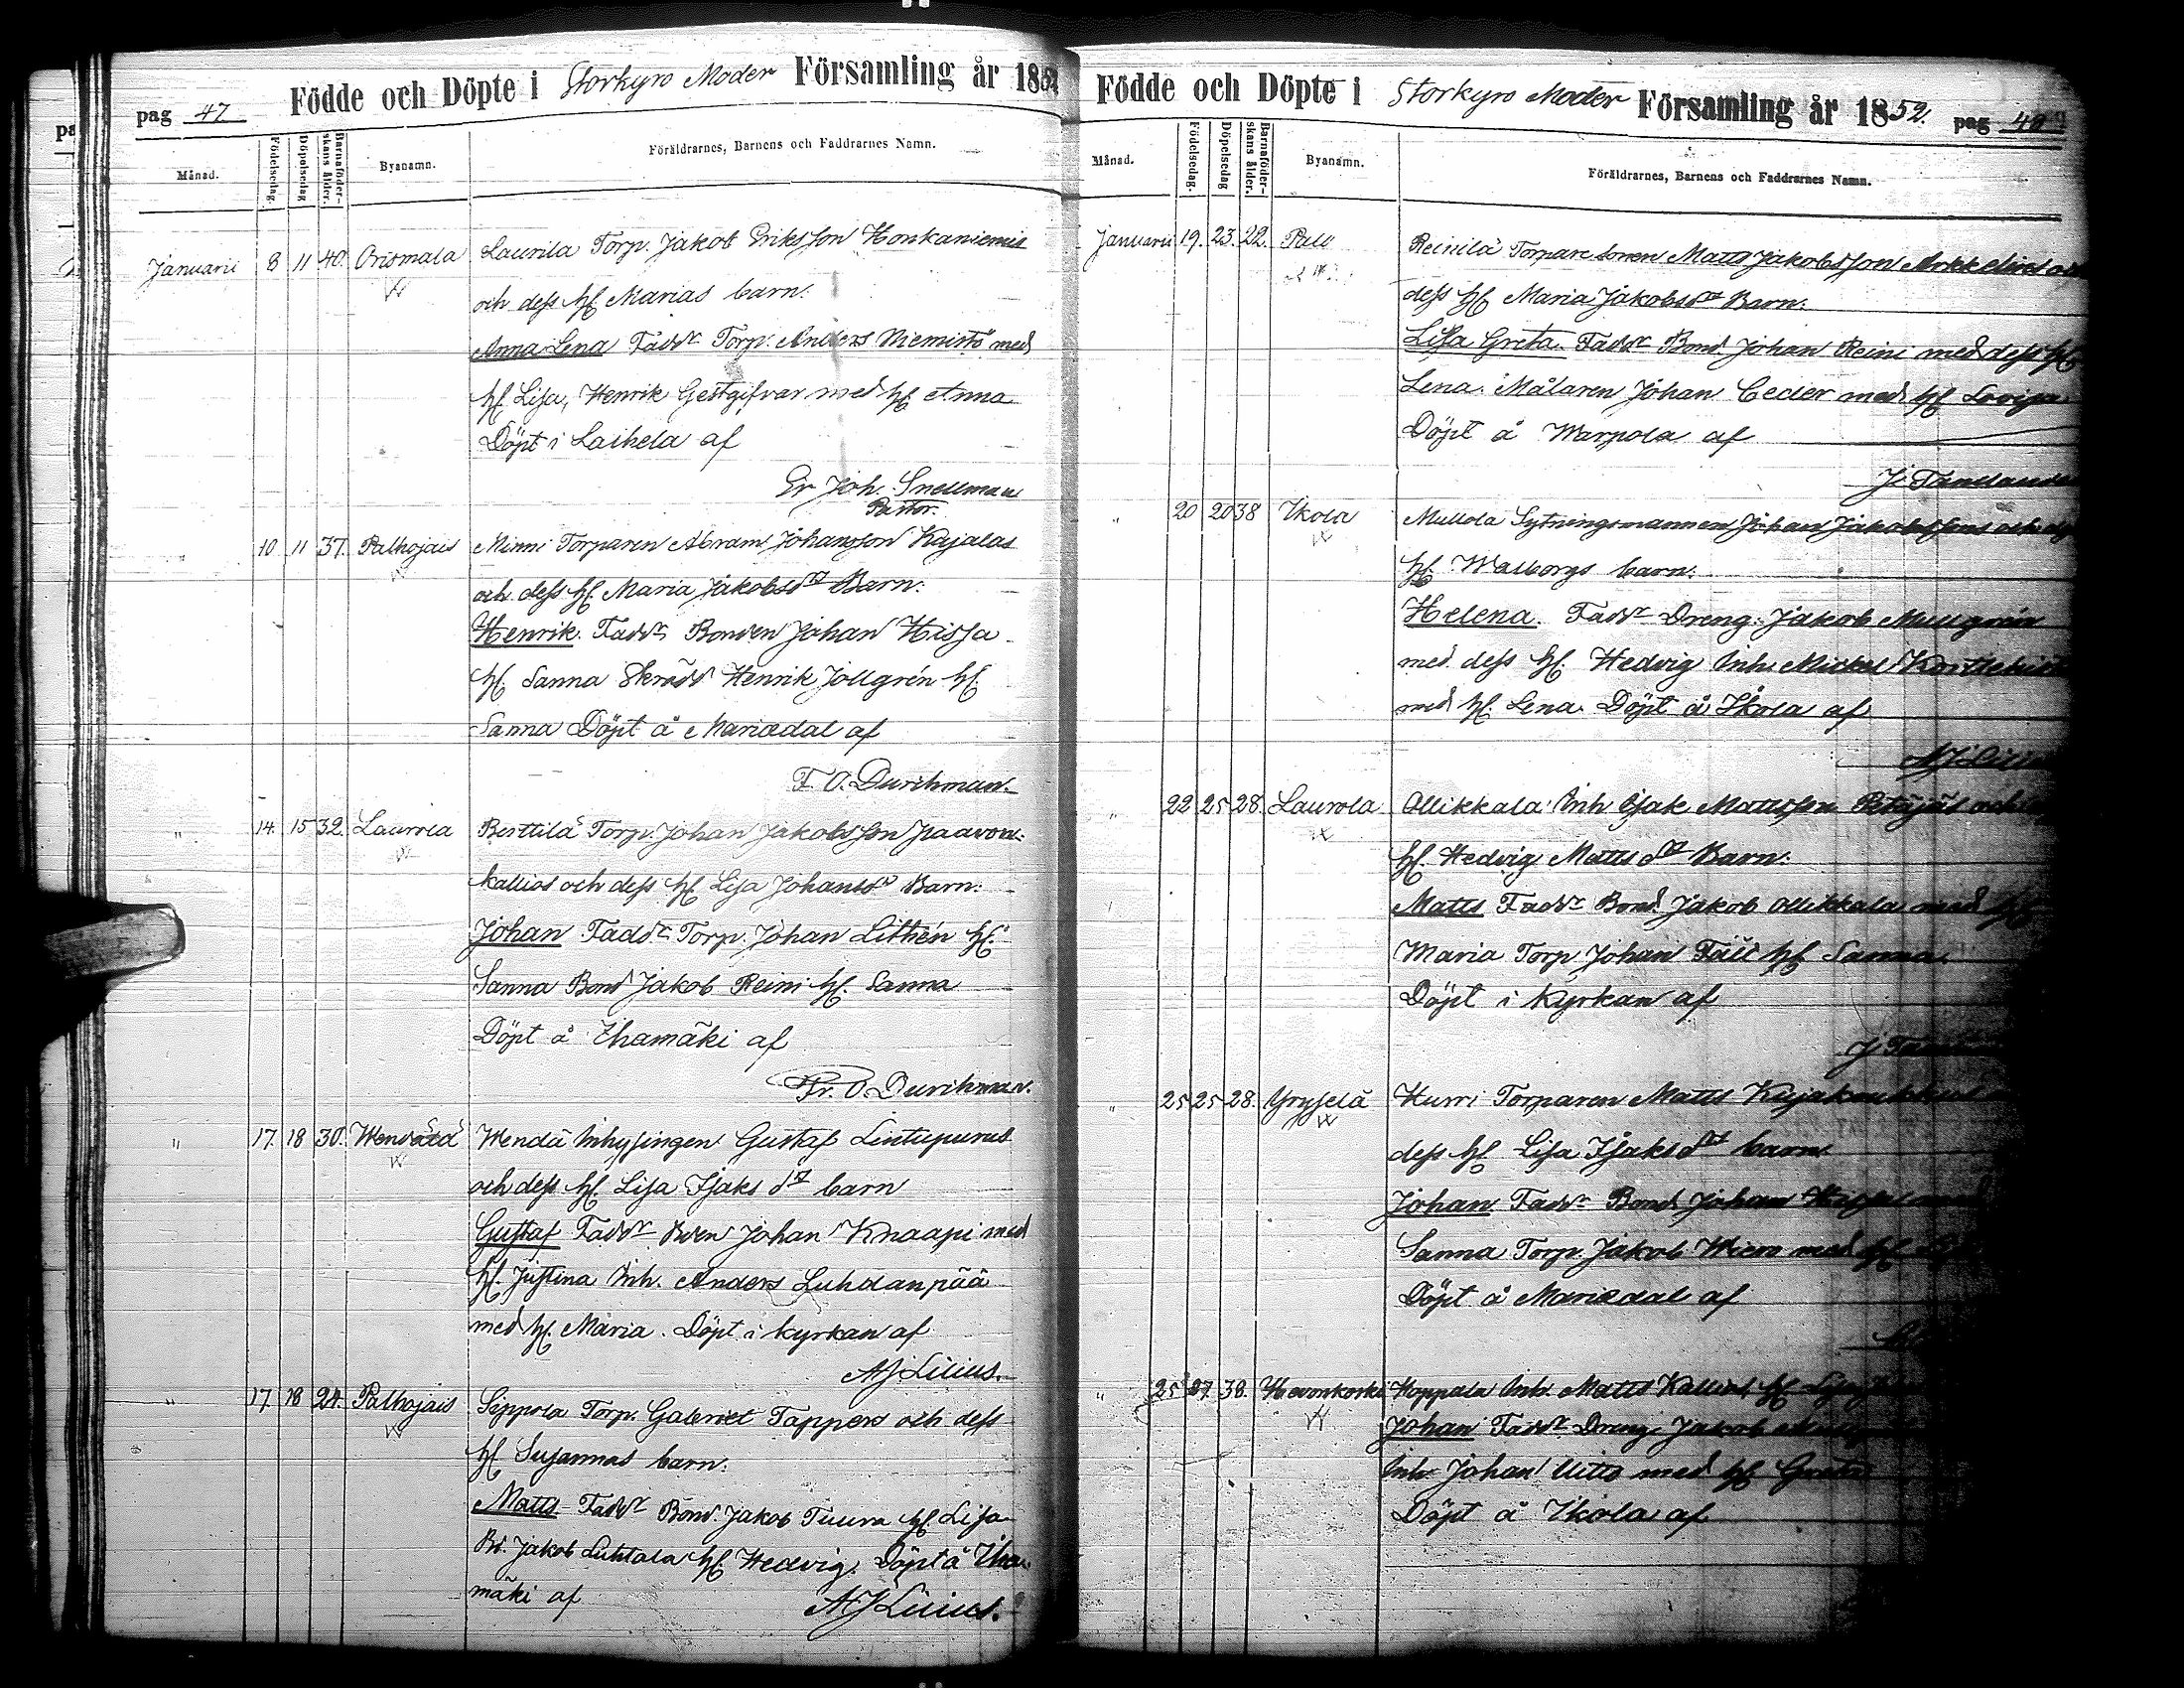 pag 47 Födde och Döpte i Storkyro Moder Församling år 1852
Månad. Födelsedag. Döpelsedag Barnaföderskans ålder. Byanamn. Föräldrarnes, Barnens och Faddrarnes Namn.
Januarii 8 11 40. Orismala Laurila Torp. Jakob Eriksson Honkaniemis
och dess H. Marias barn.
Anna Lena Faddr Torp. Anders Niemistö med
H. Lisa, Henrik Gestgifvar med H. Anna
Döpt i Laihela af
Er Joh. Snellman
Pastor.
10. 11 37. Palhojais Minni Torparen Abram Johansson Kajalas
och dess H. Maria Jakobsdr Barn.
Henrik. Faddr Bonden Johan Hissa
H. Sanna Skrädd Henrik Jollgrén H.
Sanna Döpt å Mariedal af
F. O. Durchman.
" 14. 15 32. Laurola Berttilä Torp. Johan Jakobsson Paavon-
kallios och dess H. Lisa Johansdr Barn.
Johan Faddr Torp. Johan Lithén H.
Sanna Bond Jakob Reini H. Sanna
Döpt å Ihamäki af
Fr. O. Durchman.
" 17. 18 30. Wendä Inhysingen Gustaf Lintupurus
och dess H. Lisa Isaks dr barn
Gustaf Faddr Bden Johan Knaapi med
H. Justina Inh. Anders Luhdanpää
med H. Maria. Döpt i kyrkan af
A J Lilius.
" 17. 18 24. Palhojais Seppola Torp. Gabriel Tappers och dess
H. Susannas barn.
Matts Faddr Bond. Jakob Tuura H. Lisa
Bd. Jakob Luhtala H. Hedvig. Döpt å Iha-
mäki af A J Lilius.
Födde och Döpte i Storkyro Moder Församling år 1852. pag
Månad. Födelsedag. Döpelsedag Barnaföderskans ålder. Byanamn. Föräldrarnes, Barnens och Faddrarnes Namn.
Januarii 19. 23. 22. Palo Reinilä Torpare sonen Matts Jakobsson
dess H. Maria Jakobsdr Barn.
Lisa Greta. Faddr Bond. Johan Reini med dess H.
Lena. Målaren Johan Ceder med H. Lovisa
Döpt å Warpola af
" 20 20 38 Ikola Mullola Sytningsmannen Johan Jakobssons och
H. Walborgs barn.
Helena. Faddr Dreng. Jakob Mullgrén
med dess H. Hedvig Inh. Mickel
med H. Lena. Döpt å Ikola af
" 22 25 28. Laurola Ollikkala Inh Isak Mattsson Petäjäs och
H. Hedvig Matts dr Barn.
Matts Faddr Bond. Jakob Ollikkala med H.
Maria Torp Johan Fält H. Sanna
Döpt i Kyrkan af
" 25 25 28. Yryselä Hurri Torparen Matts
dess H. Lisa Isaks dr barn
Johan Faddr Bond Johan
Sanna Torp. Jakob Wiero med H.
Döpt å Mariedal af
" 25 27. 38. Hevonkoski Hoppala Inh. Matts Kallios H. Lisa
Johan Faddr Dreng. Jakob
Inh. Johan Uitto med H. Greta
Döpt å Ikola af